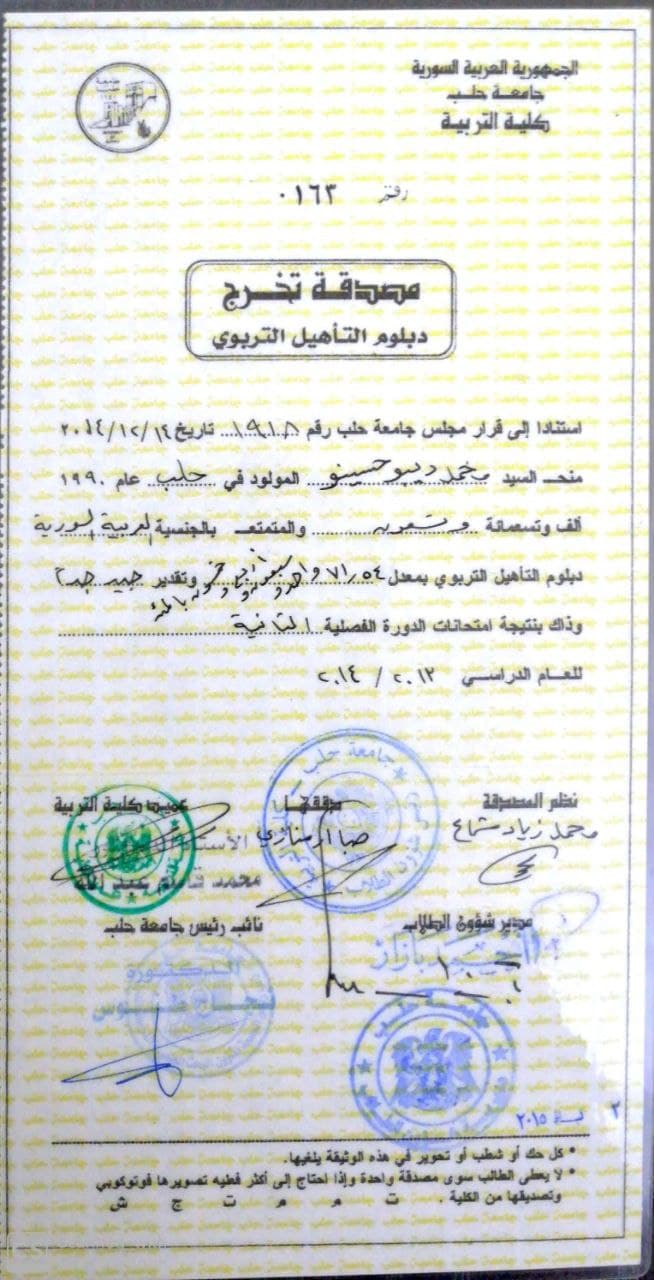 الجمهورية العربية السورية
جامعة حلب
كلية التربية
رقم ٠١٦٣
مصدقة تخرج
دبلوم التأهيل التربوي
استنادا إلى قرار مجلس جامعة حلب رقم ١٩١٨ تاريخ ٢٠١٤/١٢/١٤
منح السيد محمد ديبو حسينو المولود في حلب عام ١٩٩٠
ألف وتسعمائة وتسعون والمتمتع بالجنسية العربية السورية
دبلوم التأهيل التربوي بمعدل ٧١,٥٤ واحد وسبعون و أربع وخمسون بالمئة وتقدير جيد جداً
وذاك بنتيجة امتحانات الدورة الفصلية الثانية
للعام الدراسي ٢٠١٣ / ٢٠١٤
نظم المصدقة دققها عميد كلية التربية
محمد زياد شماع صبا
جامعة حلب
مدير شؤون الطلاب نائب رئيس جامعة حلب
بازار الدكتورة
٢٠١٥
• كل حك أو شطب أو تحوير في هذه الوثيقة يلغيها.
• لا يعطى الطالب سوى مصدقة واحدة وإذا احتاج إلى أكثر فعليه تصويرها فوتوكوبي
وتصديقها من الكلية. ت م م ت ج ش